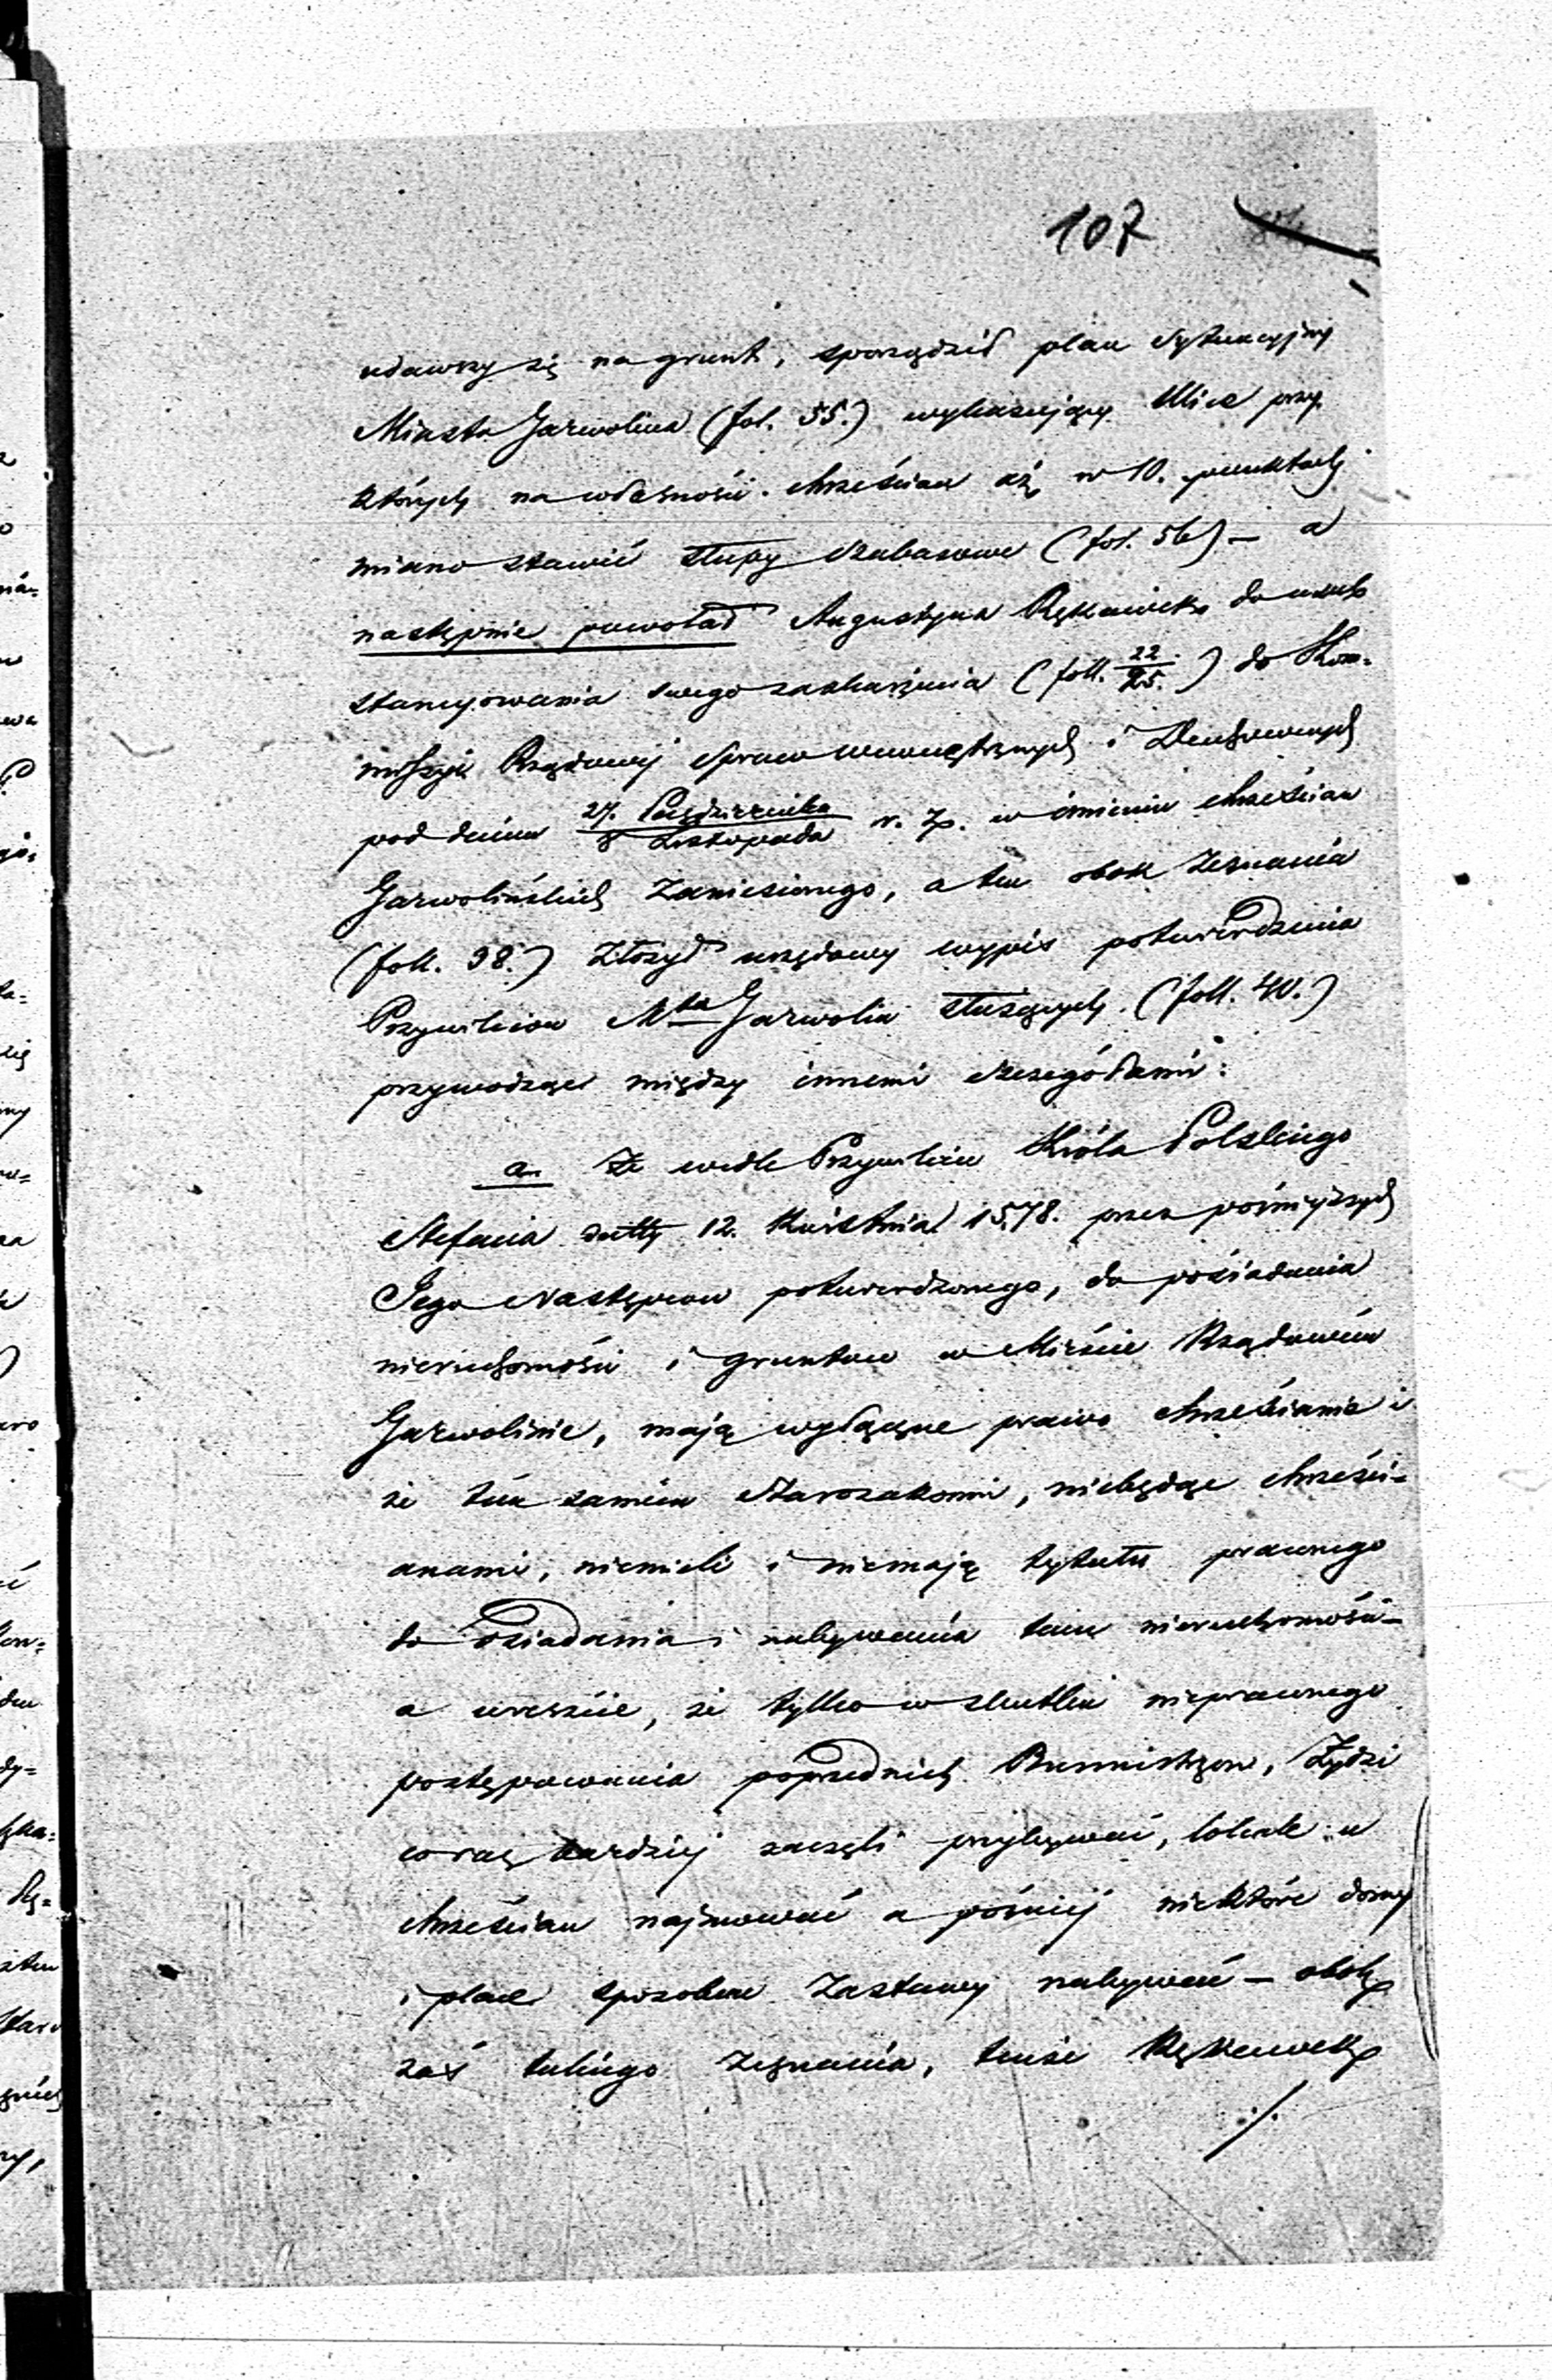 107
udawszy się na grunt, sporządził plan sytuacyjny
Miasta Garwolina (fol. 55.) wykazujący Ulice przy
których na własności chrześcian aż w 10. punktach
miano stawić słupy szabasowe (fol. 56) — a
następnie powołał Augustyna Rękawieka do
stancyowania swego zaskarżenia (foll. 22/25.) do Kom-
missyi Rządowej Spraw Wewnętrznych i Duchownych
pod dniem 27. Października/8 Listopada r. z. w imieniu chrześcian
Garwolińskich zaniesionego, a ten obok zeznania
(foll. 38.) złożył urzędowy wypis potwierdzenia
Przywileiow Mta Garwolin służących (foll. 40.)
przywodząc między innemi szczegółami:
a. Że wedle Przywileiu Króla Polskiego
Stefana datty 12. Kwietnia 1578. przez poźniejszych
Jego Następcow potwierdzonego, do posiadania
nieruchomości i gruntow w Mieście Rządowém
Garwolinie, mają wyłączne prawo chrześcianie i
że tém samém Starozakonni, niebędąc chrześci-
anami, niemieli i niemają tytułu prawnego
do osiadania i nabywania tamże nieruchomości —
a wreszcie, że tylko w skutku nieprawnego
postępowania poprzednich Burmistrzow, Żydzi
coraz bardziej zaczęli przybywać, lokale u
chrześcian najmować a poźniej niektóre domy
i place sposobem Zastawy nabywać — obok
zaś takiego zeznania, tenże Rękawek
./.